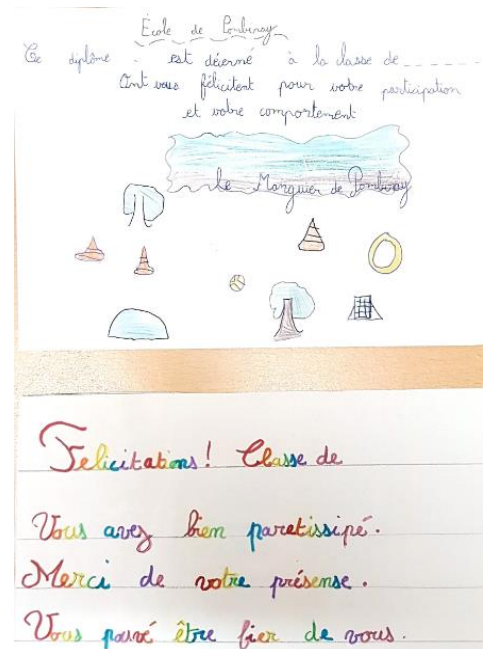 École de Pombonay
Ce diplôme est décerné à la classe de
Ont vous félicitent pour votre participation
et votre comportement
Le Manguier de Pombonay
Felicitations! Classe de
Vous avez bien paretissipé.
Merci de votre présense.
Vous pouvé être fier de vous.